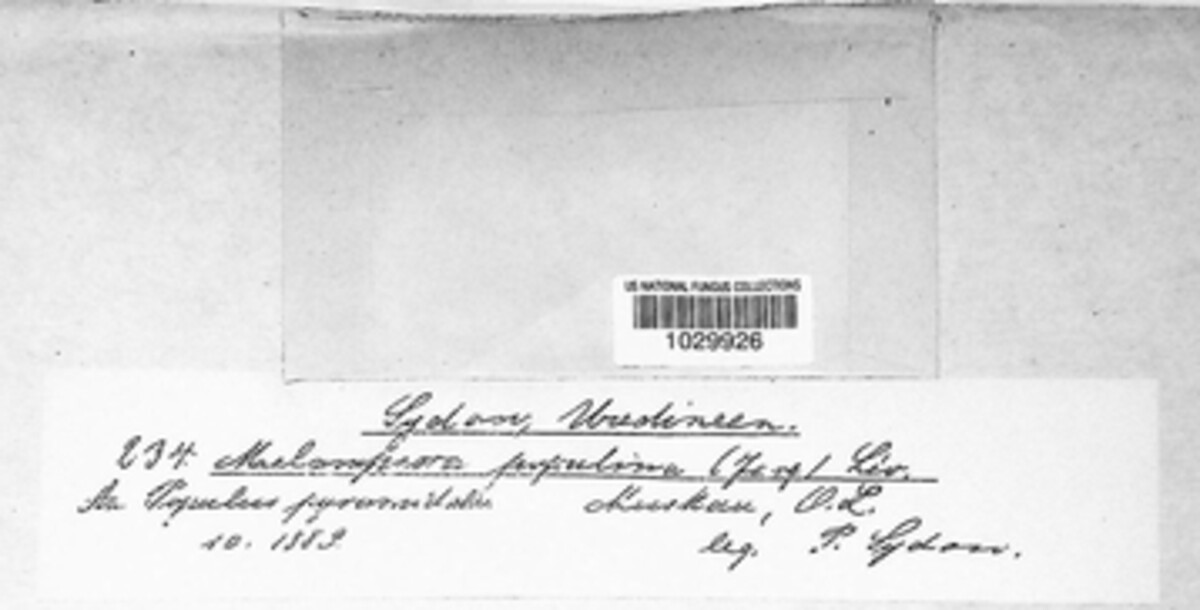 US NATIONAL FUNGUS COLLECTIONS
1029926
Sydow, Uredineen.
234. Melampsora populina (Jacq) Lév.
An Populus pyramidalis Muskau, O.L.
10. 1889. leg. P. Sydow.